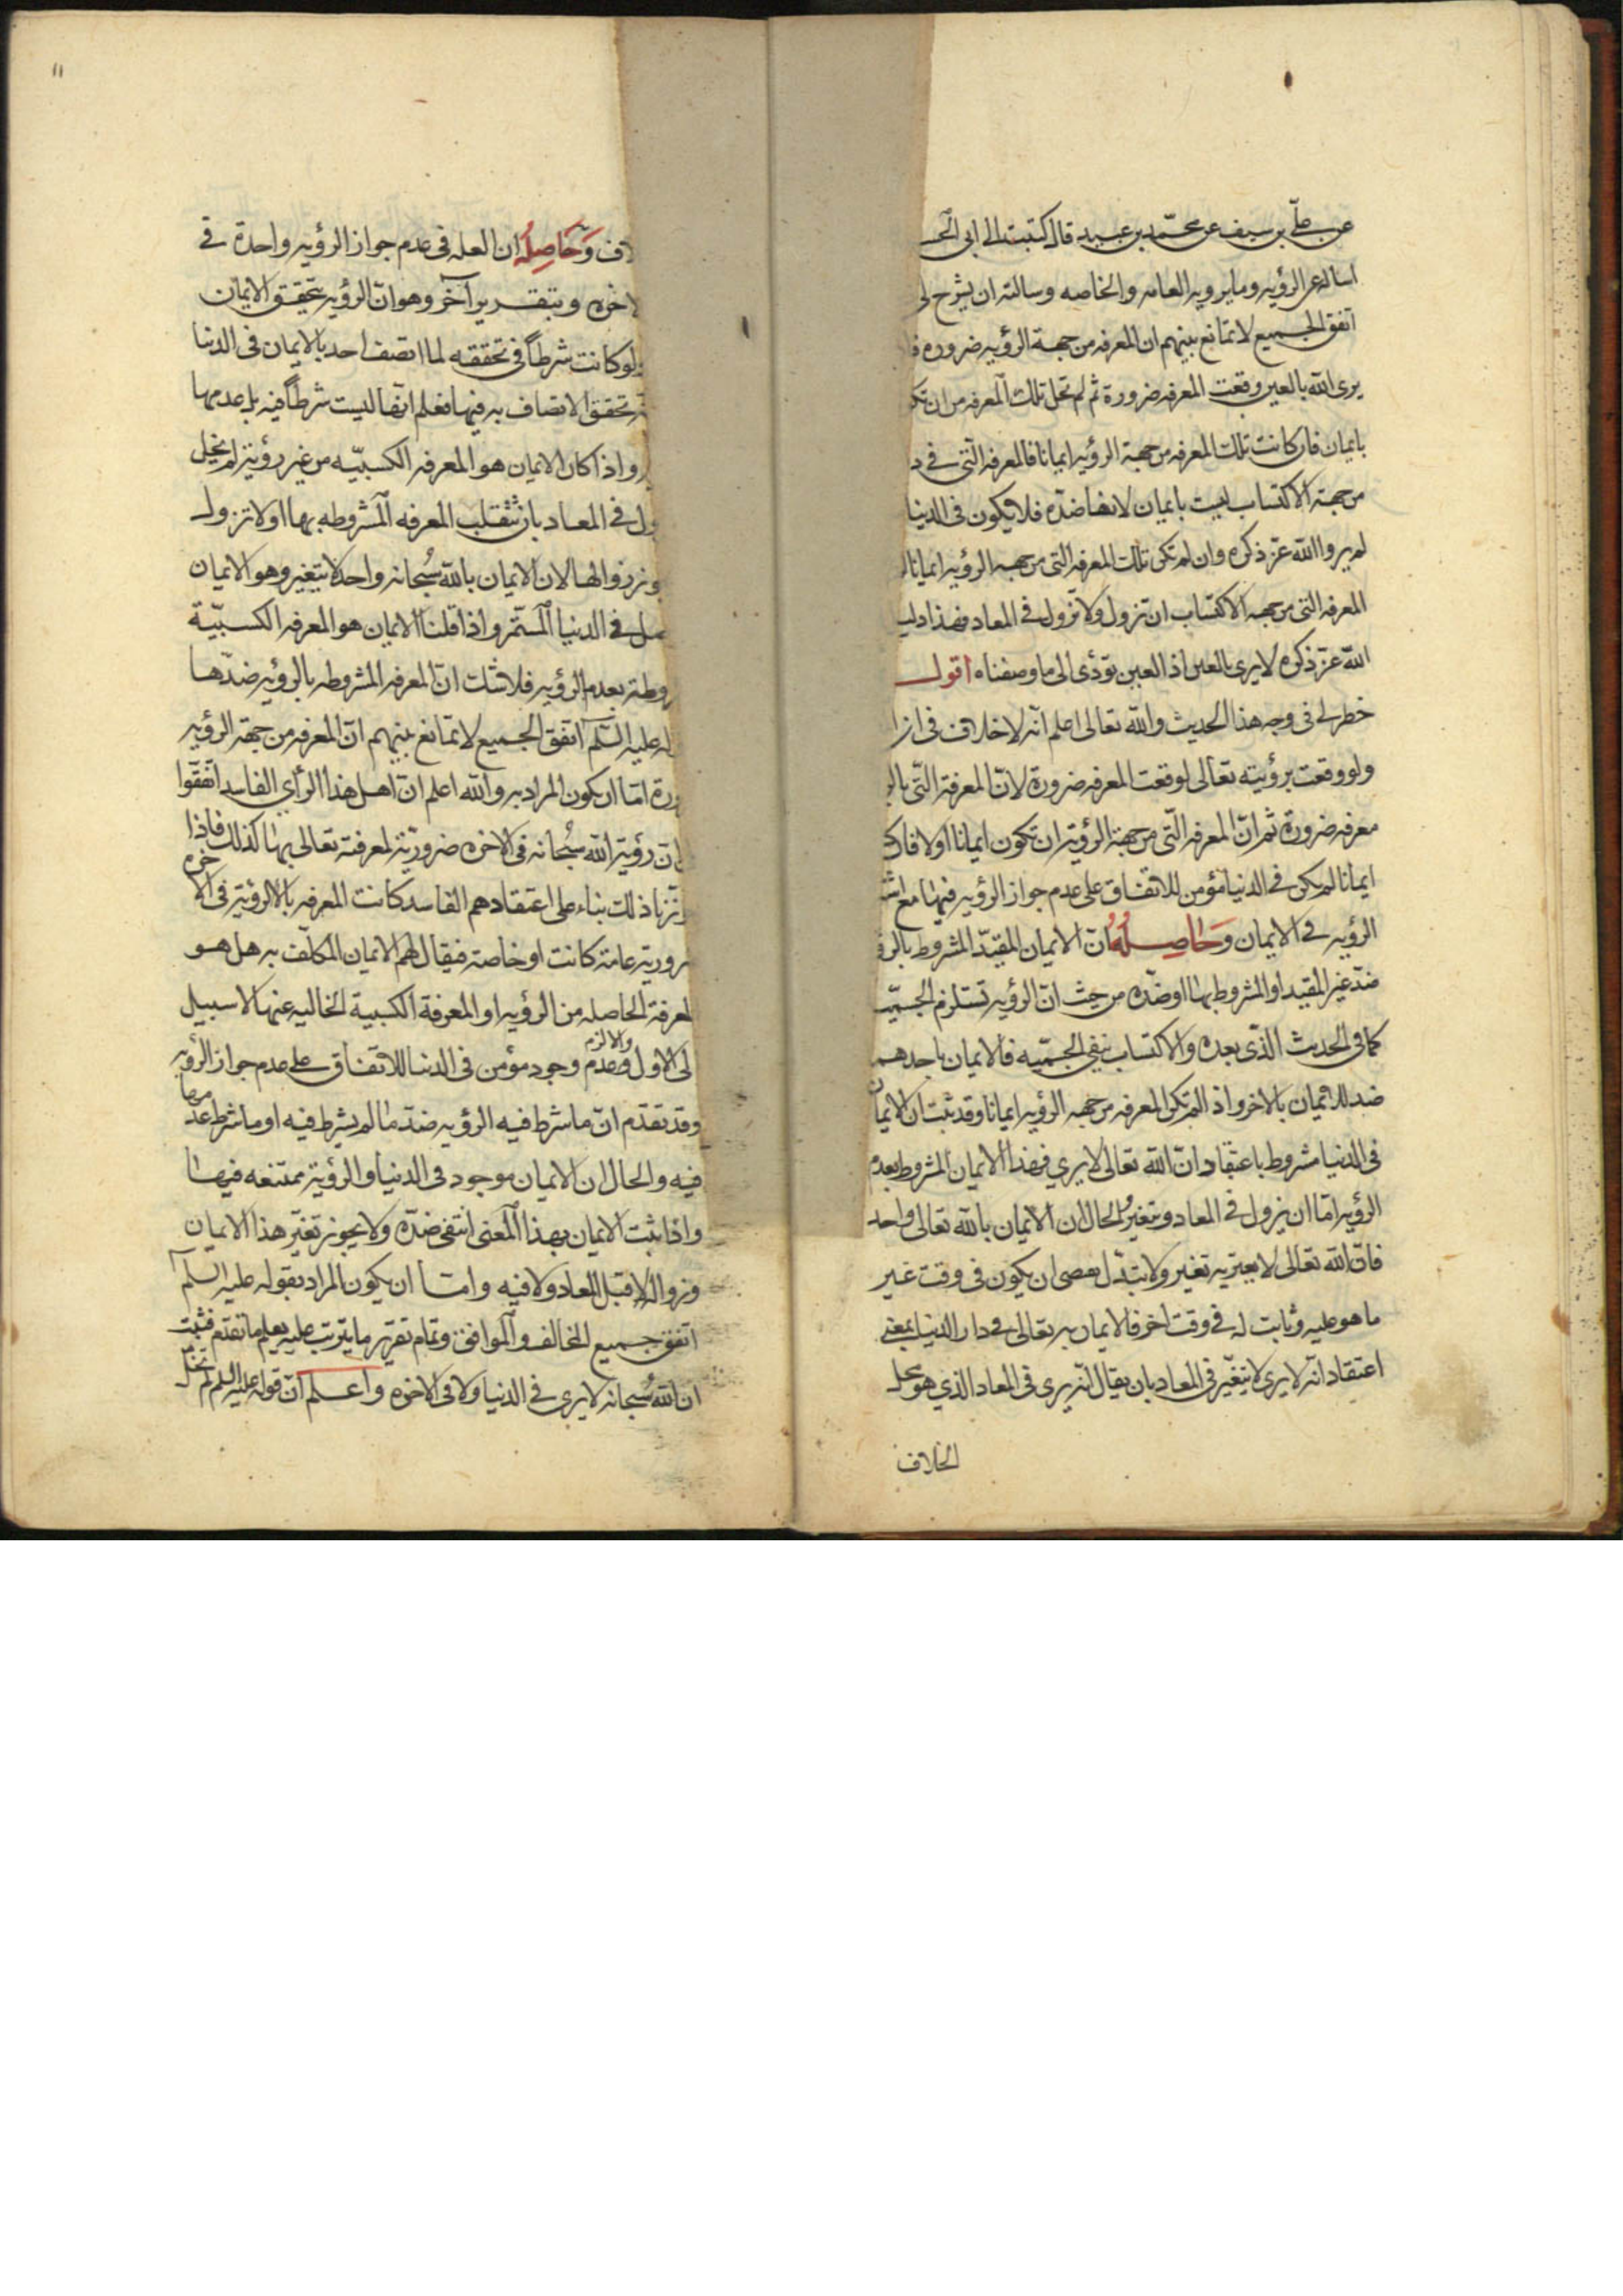 عن علي بن سيف عن محمد بن عبيد قال كتبت الى ابي الحسـ
اساله عن الرؤيه وما يرويه العامه والخاصه وسالته ان يشرح لي
اتفق الجميع لا تمانع بينهم ان المعرفه من جهة الرؤيه ضروره فا
يرى الله بالعين وقعت المعرفه ضرورة ثم لم تخل تلك المعرفه من ان تكو
بايمان فان كانت تلك المعرفه من جهة الرؤيه ايمانا فالمعرفه التي في د
من جهة الاكتساب ليست بايمان لانها ضده فلا يكون في الدنيا
لم يروا الله عز ذكره وان لم تكن تلك المعرفه التي من جهه الرؤيه ايمانا لم
المعرفه التي من جهه الاكتساب ان تزول ولا تزول في المعاد فهذا دليـ
الله عز ذكره لا يرى بالعين اذ العين تؤدى الى ما وصفناه اقول
خطر لي في وجه هذا الحديث والله تعالى اعلم انه لا خلاف في ان ا
ولو وقعت برؤيته تعالى لوقعت المعرفه ضرورة لان المعرفة التي بالر
معرفه ضرورة ثم ان المعرفه التي من جهة الرؤية ان تكون ايمانا اولا فان كا
ايمانا لم يكن في الدنيا مؤمن للاتفاق على عدم جواز الرؤيه فيها مع اشتـ
الرؤيه في الايمان وحاصله ان الايمان المقيد المشروط بالرؤ
ضد غير المقيد او المشروط بها او ضده من حيث ان الرؤيه تستلزم الجسميـ
كما في الحديث الذي بعده والاكتساب ينفي الجسميه فالايمان باحدهمـ
ضد للايمان بالاخر واذا لم تكن المعرفه من جهه الرؤيه ايمانا وقد ثبت ان الايمان
في الدنيا مشروط باعتقاد ان الله تعالى لا يري فهذا الايمان المشروط بعدم
الرؤيه اما ان يزول في المعاد ويتغير والحال ان الايمان بالله تعالى واحد
فان الله تعالى لا يعتريه تغير ولا تبدل فعصى ان يكون في وقت غير
ما هو عليه وثابت له في وقت اخر فالايمان به تعالى في دار الدنيا بمعني
اعتقاد انه لا يرى لا يتغير في المعاد بان يقال انه يرى في المعاد الذي هو محل
الخلاف
١١
ـلاف وحاصله ان العله في عدم جواز الرؤيه واحدة في
لاخره وبتقدير آخر وهو ان الرؤيه يتحقق الايمان
ولو كانت شرطاً في تحققه لما اتصف احد بالايمان في الدنيا
تحقق الاتصاف به فيها فعلم انها ليست شرطاً فيه بل عدمها
واذا كان الايمان هو المعرفه الكسبيه من غير رؤية لم يخل
ول في المعاد بان تنقلب المعرفه المشروطه بها او لا تزول
وزوالها لان الايمان بالله سبحانه واحد لا يتغير وهو الايمان
في الدنيا المستمر واذا قلنا الايمان هو المعرفه الكسبية
روطة بعدم الرؤيه فلا شك ان المعرفه المشروطه بالرؤيه ضدها
له عليه السلم اتفق الجميع لا تمانع بينهم ان المعرفه من جهة الرؤيه
ورة اما ان يكون المراد به والله اعلم ان اهل هذا الرأي الفاسد اتفقوا
ان رؤية الله سبحانه في الاخره ضرورية لمعرفته تعالى بها كذلك فاذا
ذلك بناء على اعتقادهم الفاسد كانت المعرفه بالرؤية في الاخره
رورية عامة كانت او خاصة فيقال لهم الايمان المكلف به هل هو
لمعرفة الحاصله من الرؤيه او المعرفة الكسبية الخاليه عنها لا سبيل
لى الاول والا لزم عدم وجود مؤمن في الدنيا للاتفاق على عدم جواز الرؤيه
وقد تقدم ان ما شرط فيه الرؤيه ضد ما لم يشرط فيه او ما شرط عدمها
فيه والحال ان الايمان موجود في الدنيا والرؤية ممتنعه فيها
واذا ثبت الايمان بهذا المعنى انتفى ضده ولا يجوز تغير هذا الايمان
وزواله لا قبل المعاد ولا فيه واما ان يكون المراد بقوله عليه السلم
اتفق جميع المخالف والموافق وتمام تقرير ما يترتب عليه يعلم ما تقدم فثبت
ان الله سبحانه لا يرى في الدنيا ولا في الاخره واعلم ان قوله عليه السلم لم تخل